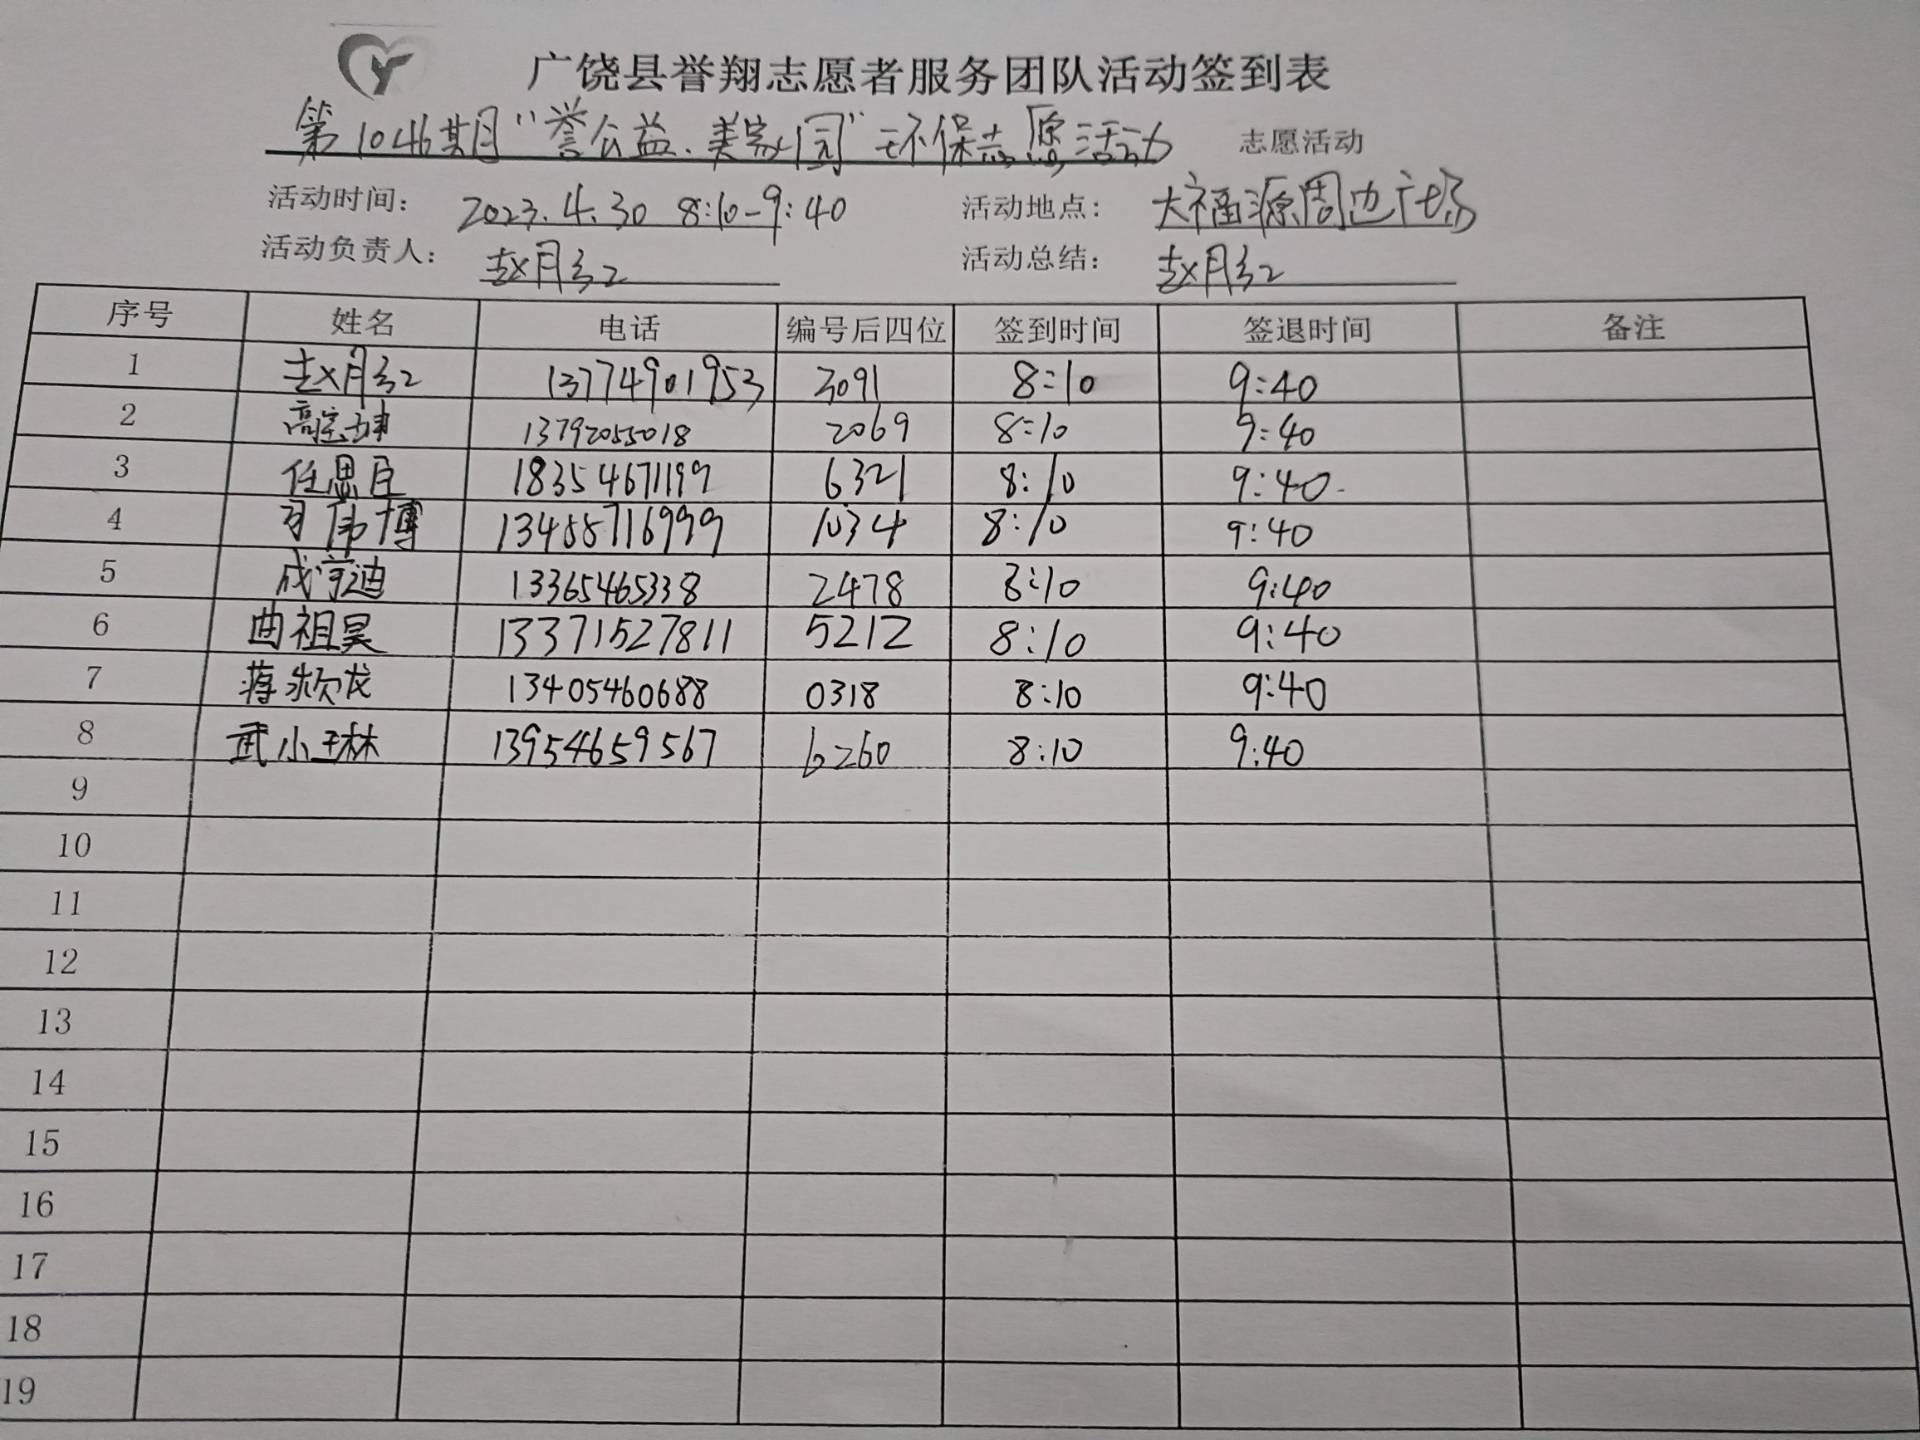 广饶县誉翔志愿者服务团队活动签到表
第1046期"誉公益.美家园"环保志愿活动 志愿活动
活动时间: 2023.4.30 8:10-9:40 活动地点: 大福源周边广场
活动负责人: 赵月红 活动总结: 赵月红
序号 姓名 电话 编号后四位 签到时间 签退时间 备注
1 赵月红 13774901953 3091 8:10 9:40
2 高宝坤 13792055018 2069 8:10 9:40
3 任思臣 18354671199 6321 8:10 9:40
4 伟博 13455716999 1034 8:10 9:40
5 成宇迪 13365465338 2478 8:10 9:40
6 曲祖昊 13371527811 5212 8:10 9:40
7 蒋龙 13405460688 0318 8:10 9:40
8 武小琳 13954659567 6260 8:10 9:40
9
10
11
12
13
14
15
16
17
18
19